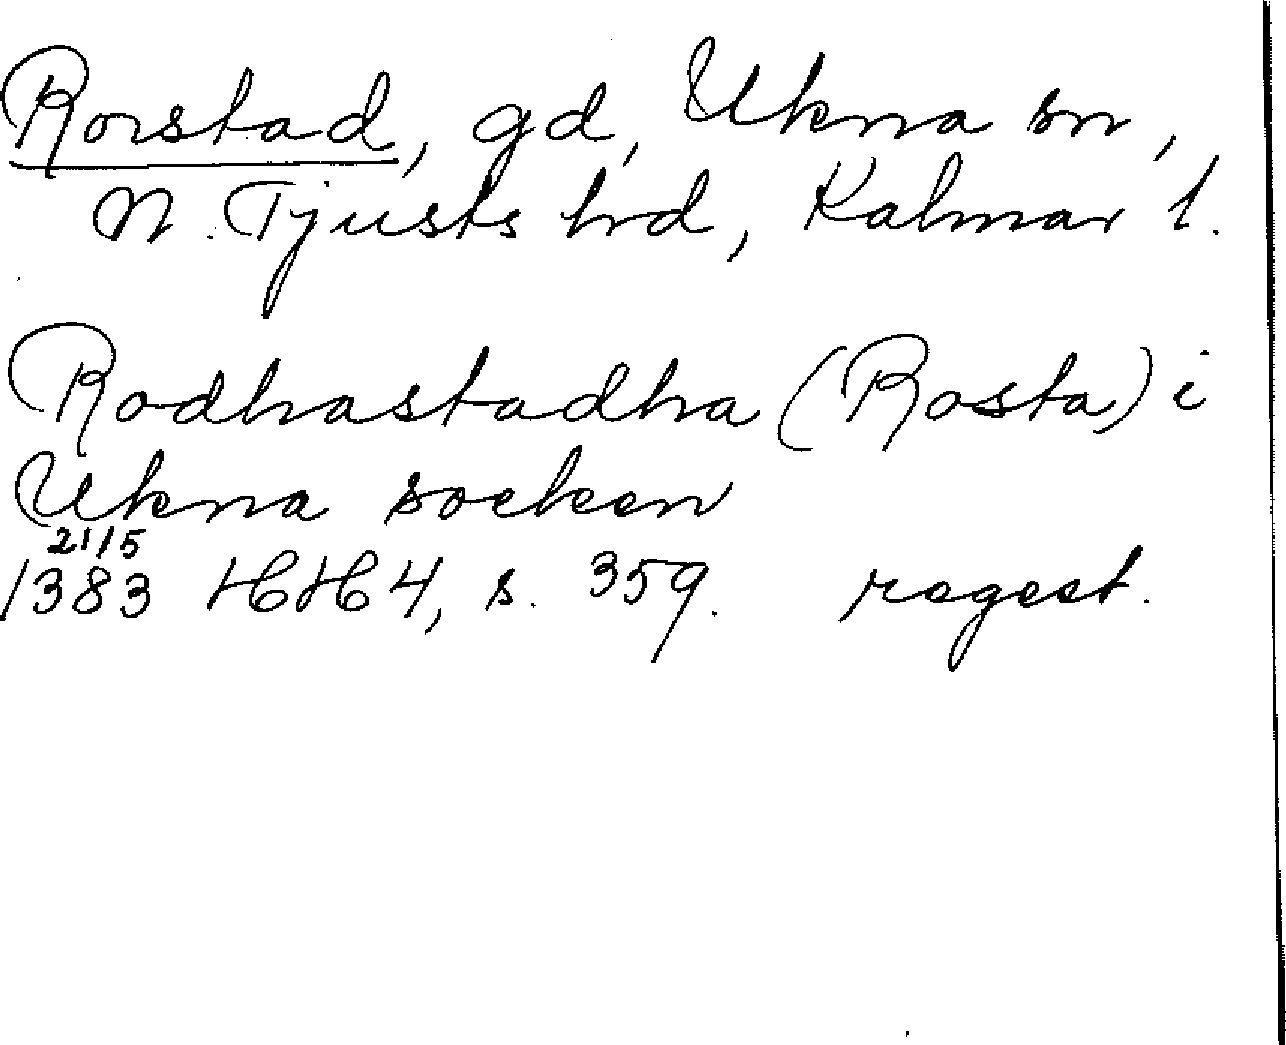 Rorstad, gd, Ukna sn,
N. Tjusts hd, Kalmar l.
Rodhastadha (Rosta) i
Ukna socken
21/5
1383 HH 4, s. 359. regest.